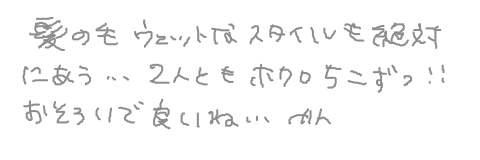 髪の毛 ウェットなスタイルも絶対
にあう… 2人ともホクロ5こずつ!!
おそろいで良いね…